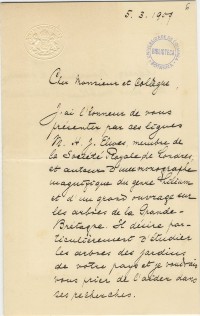 6
5. 3. 1901
Cher Monsieur et Collègue,
J'ai l'honneur de vous
présenter par ces lignes
M. H. J. Elwes, membre de
la Société Royale de Londres,
et auteur d'une monographie
magnifique du genre Lilium
et d'un grand ouvrage sur
les arbres de la Grande-
Bretagne. Il désire par-
ticulièrement d'étudier
les arbres des jardins
de votre pays et je voudrais
vous prier de l'aider dans
ses recherches.